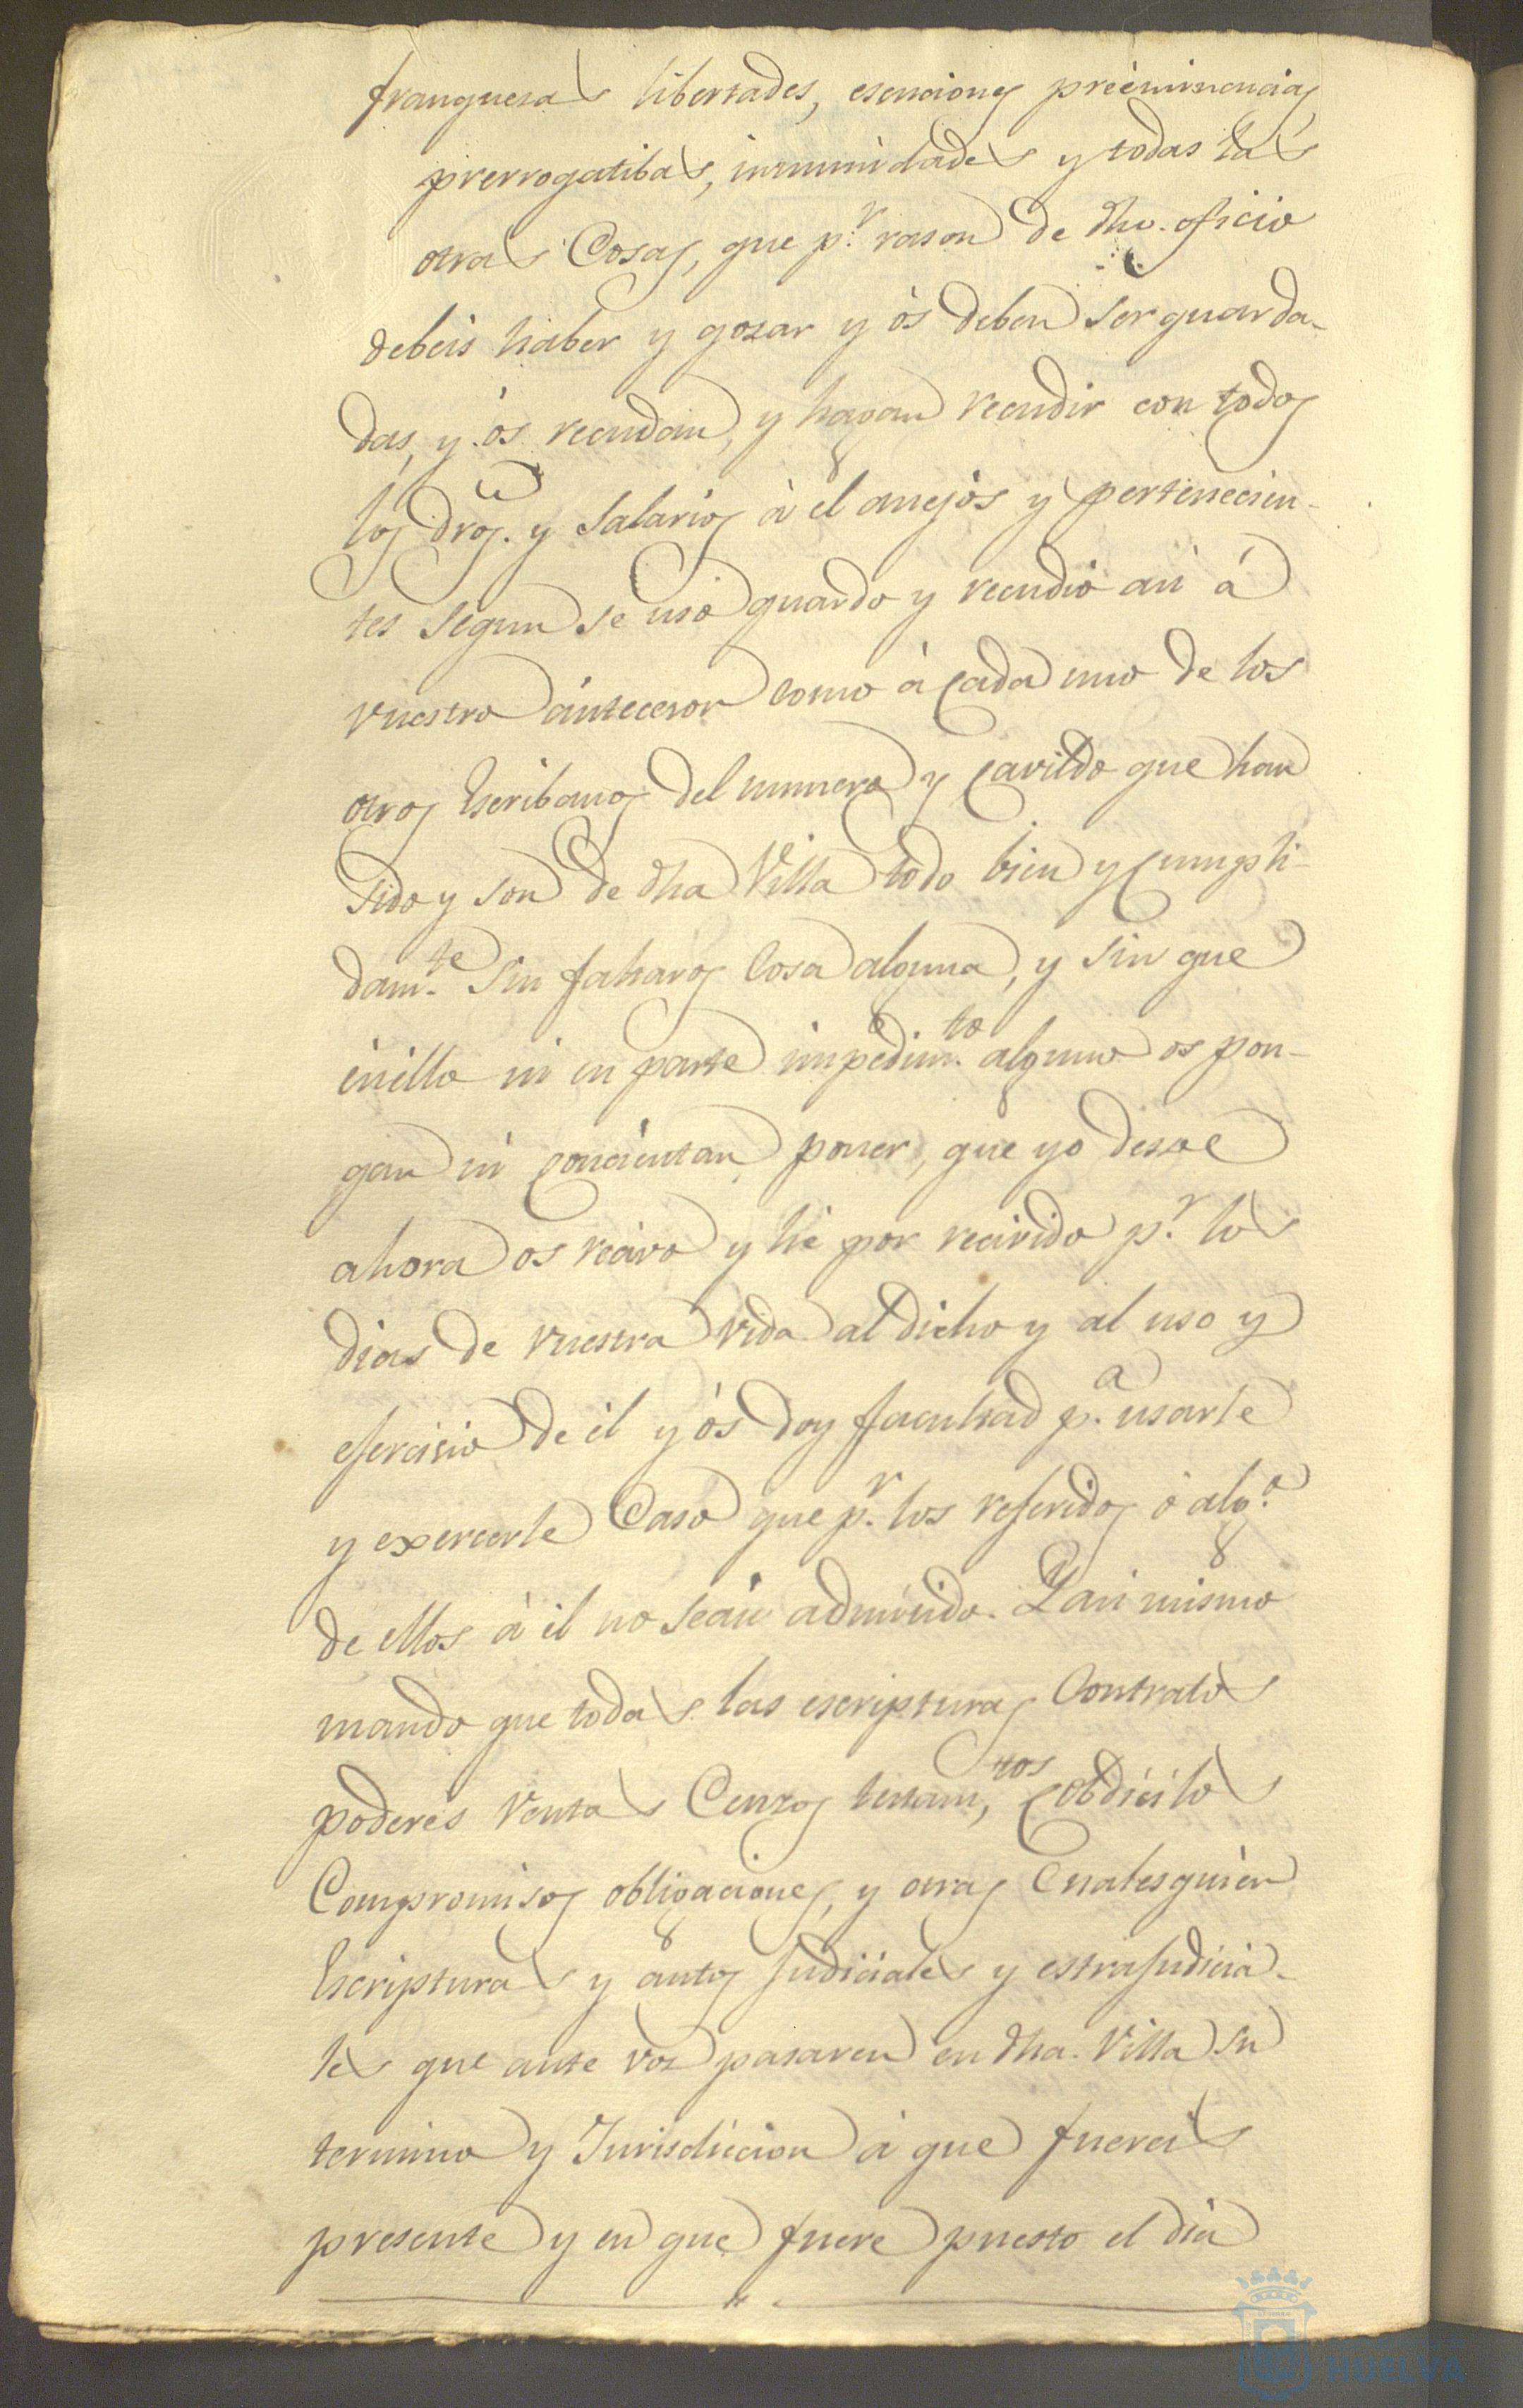 franquesas libertades, esenciones preéminencias
prerrogatibas, inmunidades y todas las
otras Cosas, que p.r rason de dho. oficio
debeis haber y gozar y os deben ser guarda-
das, y os recudan, y hagan recudir con todos
los dros. y Salarios à él anejos y pertenecien-
tes segun se usó guardo y recudió asi á
vuestro ántecesor como à Cada uno de los
otros Escribanos del numero y Cavildo que han
sido y son de dha Villa todo bien y Cumpli-
dam.te Sin faltaros Cosa alguna, y sin que
énello ni en parte impedim.to alguno os pon-
gan ni Consientan poner, que yo desde
ahora os recivo y hé por recivido p.r los
dias de vuestra vida al dicho y al uso y
esercisio de él y ós doy facultad p.a usarle
y exercerle Caso que p.r los referidos ó alg.o
de ellos à él no seais admitido. Y asi mismo
mando que todas las escripturas Contratos
poderes Ventas Cenzos testam,tos Cobdicilos
Compromisos obligaciones, y otras Cualesquier
Escripturas y autos Judiciales y estrajudicia-
les que ante voz pasaren en dha. Villa su
termino y Jurisdiccion à que fuereis
presente y en que fuere puesto el dia
HUELVA